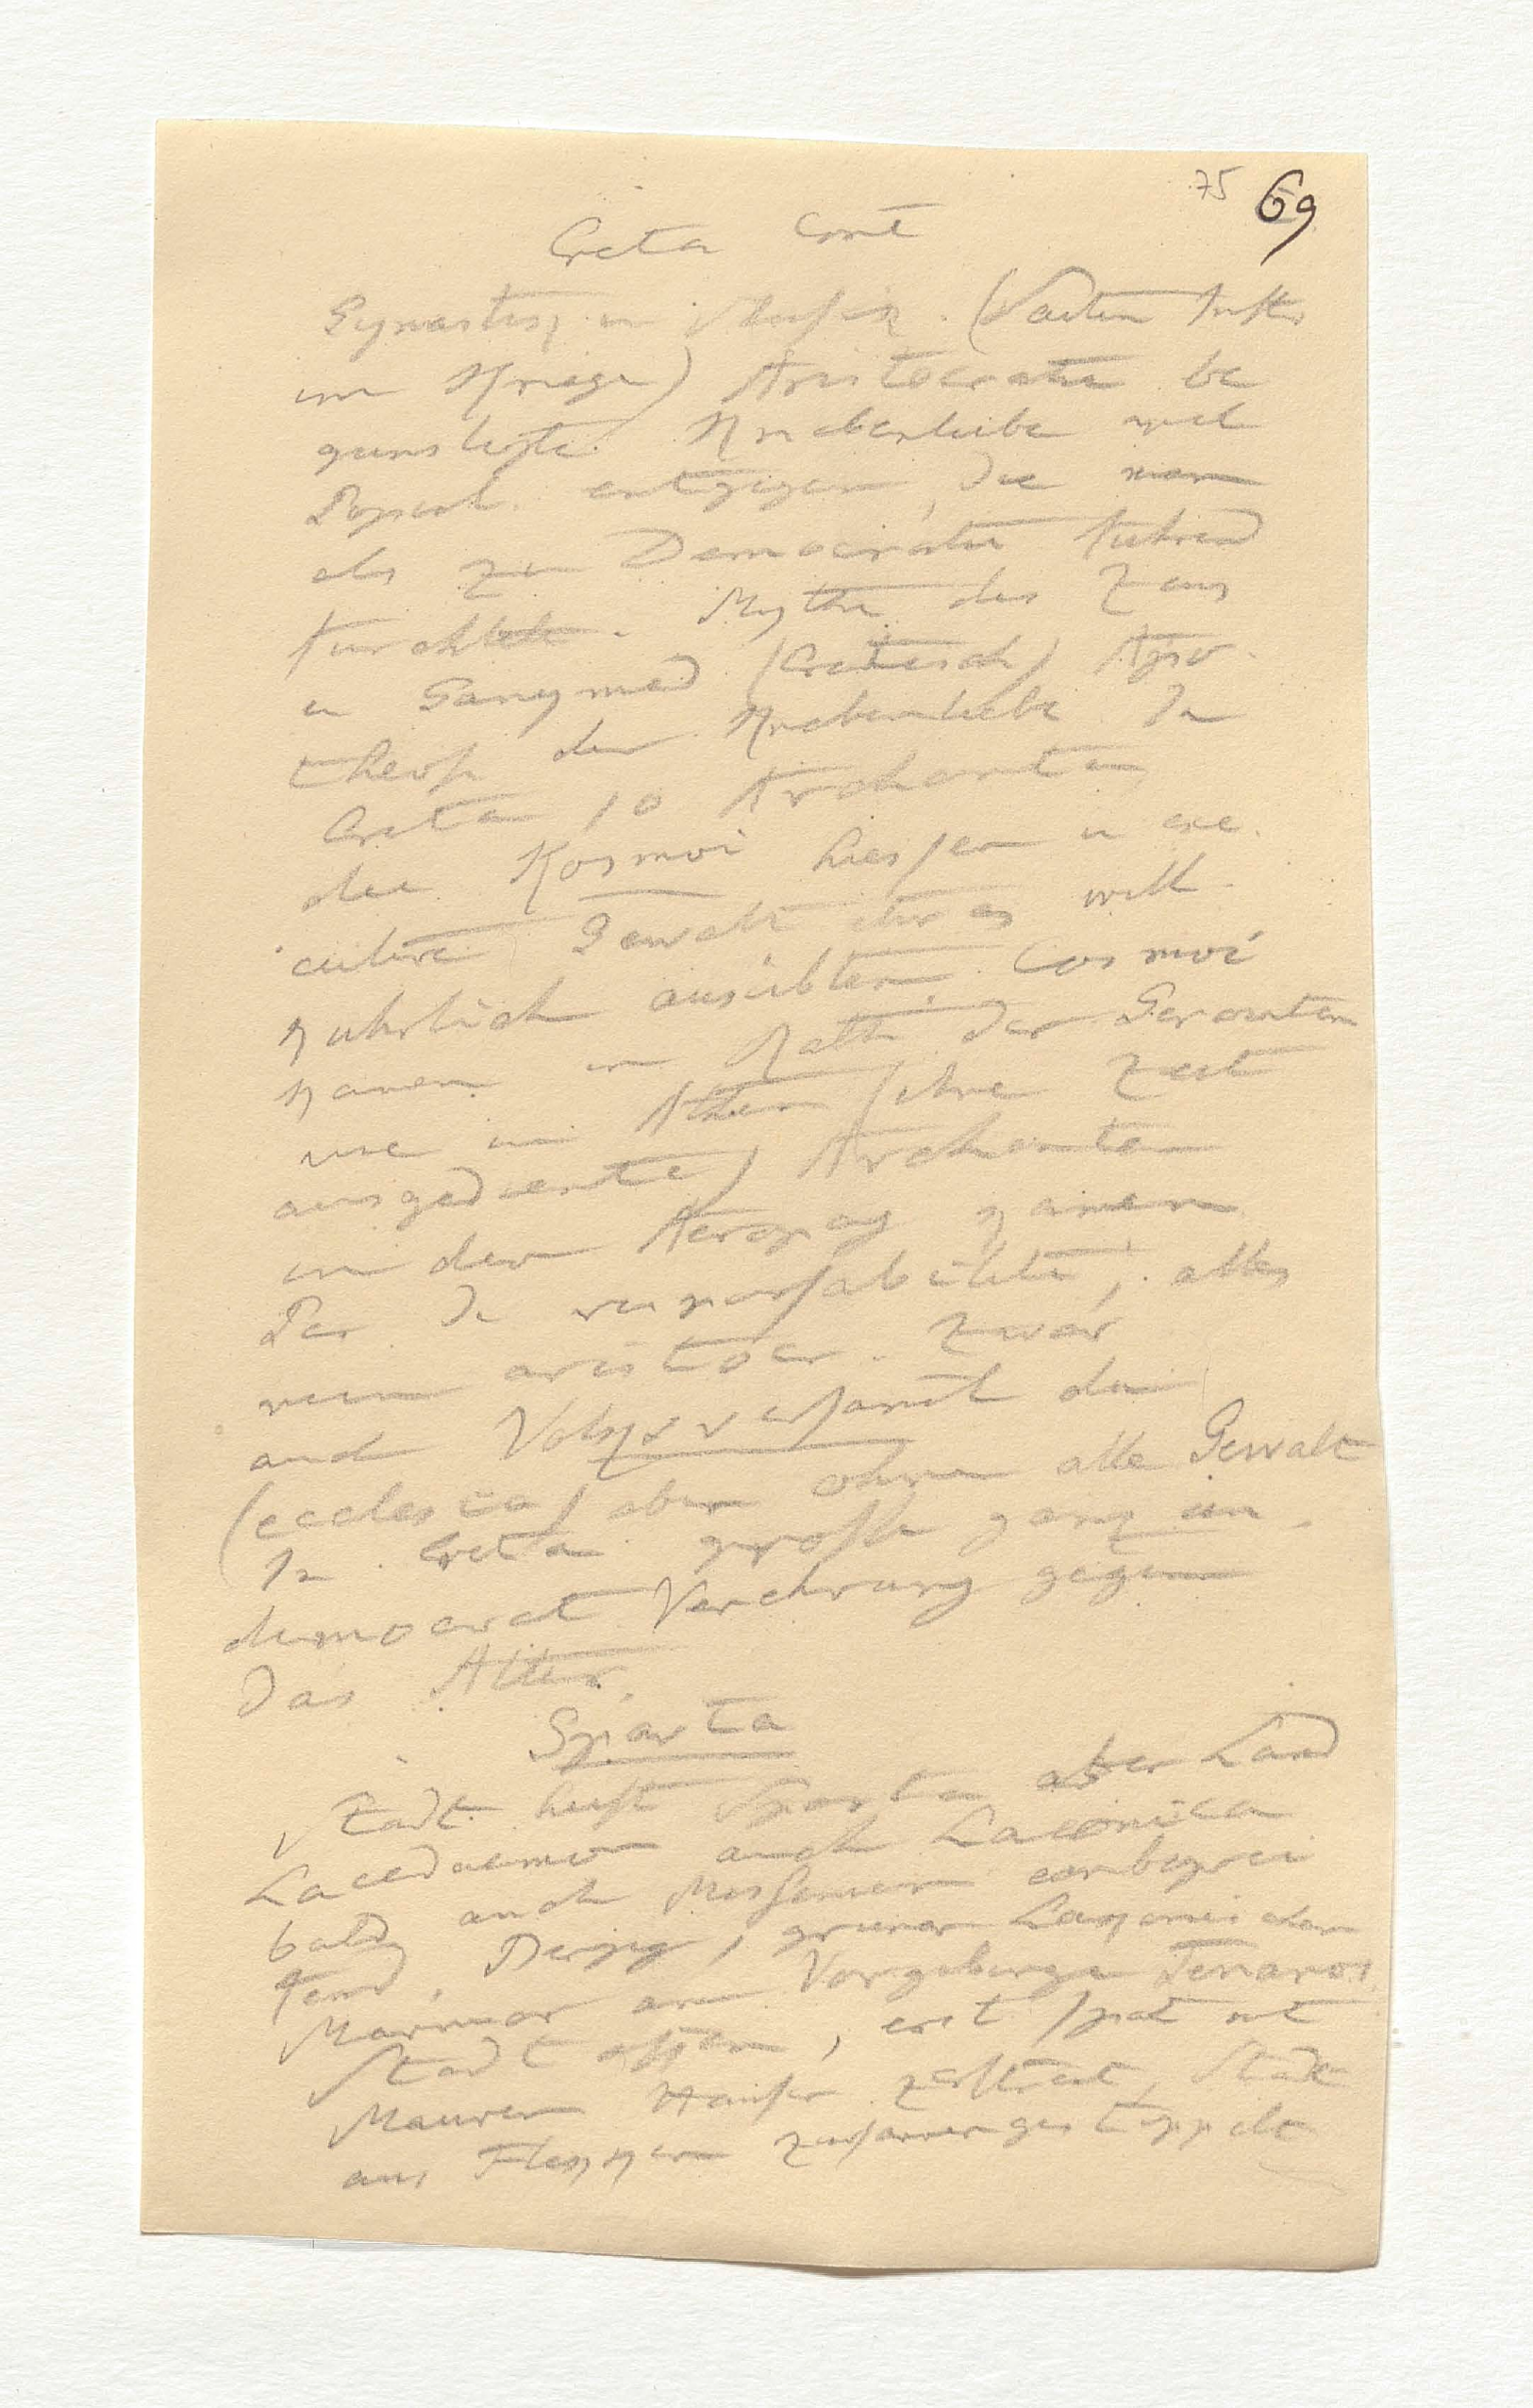 75 69
Creta Cont
Gymastik u Musik. (Saiten Instr
im Kriege) Aristocratie be
gunstigte Knabenliebe weil
Popul. entgegen, die man
als zu Democratie fuhrend
furchtete. Mythe des Zeus
u Ganymed (Cretisch) Apo
theose der Knabenliebe In
Creta 10 Archonten,
die Kosmoi hiessen u exe
cutive Gewalt etwas will
kuhrlich ausübten. Cosmoi
kamen in Rath der Geronten
wie in Athen (ihre Zeit
ausgediente) Archonten
in den Areopag kamen
alles
rein aristocr. Zwar
auch Volksversaml da
(ecclesia) aber ohne alle Gewalt
In Creta große ganz un
democrat Verehrung gegen
das Alter.
Sparta
Stadt heist Sparta aber Land
Lacedaemon auch Laconica
bald auch Messenien einbegrei
fend. gruner Laconischer
Marmor am Vorgebirge Tenaros
Stadt offen, erst spat mit
Mauern Hauser zerstreut, Stadt
aus Flekken zusammengestoppelt